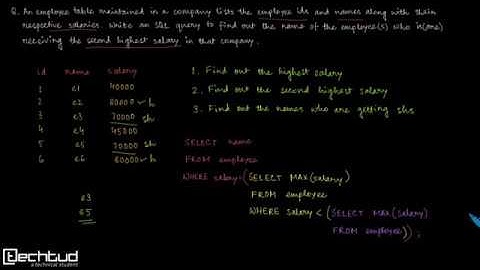 Q. An employee table maintained in a company lists the employee ids and names along with their
respective salaries. Write an SQL query to find out the name of the employee(s) who is(are)
receiving the second highest salary in that company.
id name salary
1 e1 40000
2 e2 80000 h
3 e3 70000 sh
4 e4 45000
5 e5 70000 sh
6 e6 80000 h
e3
e5
1. Find out the highest salary
2. Find out the second highest salary
3. Find out the names who are getting shs
SELECT name
FROM employee
WHERE salary=(SELECT MAX(salary)
FROM employee
WHERE salary < (SELECT MAX(salary)
FROM employee));
techtud
a technical student